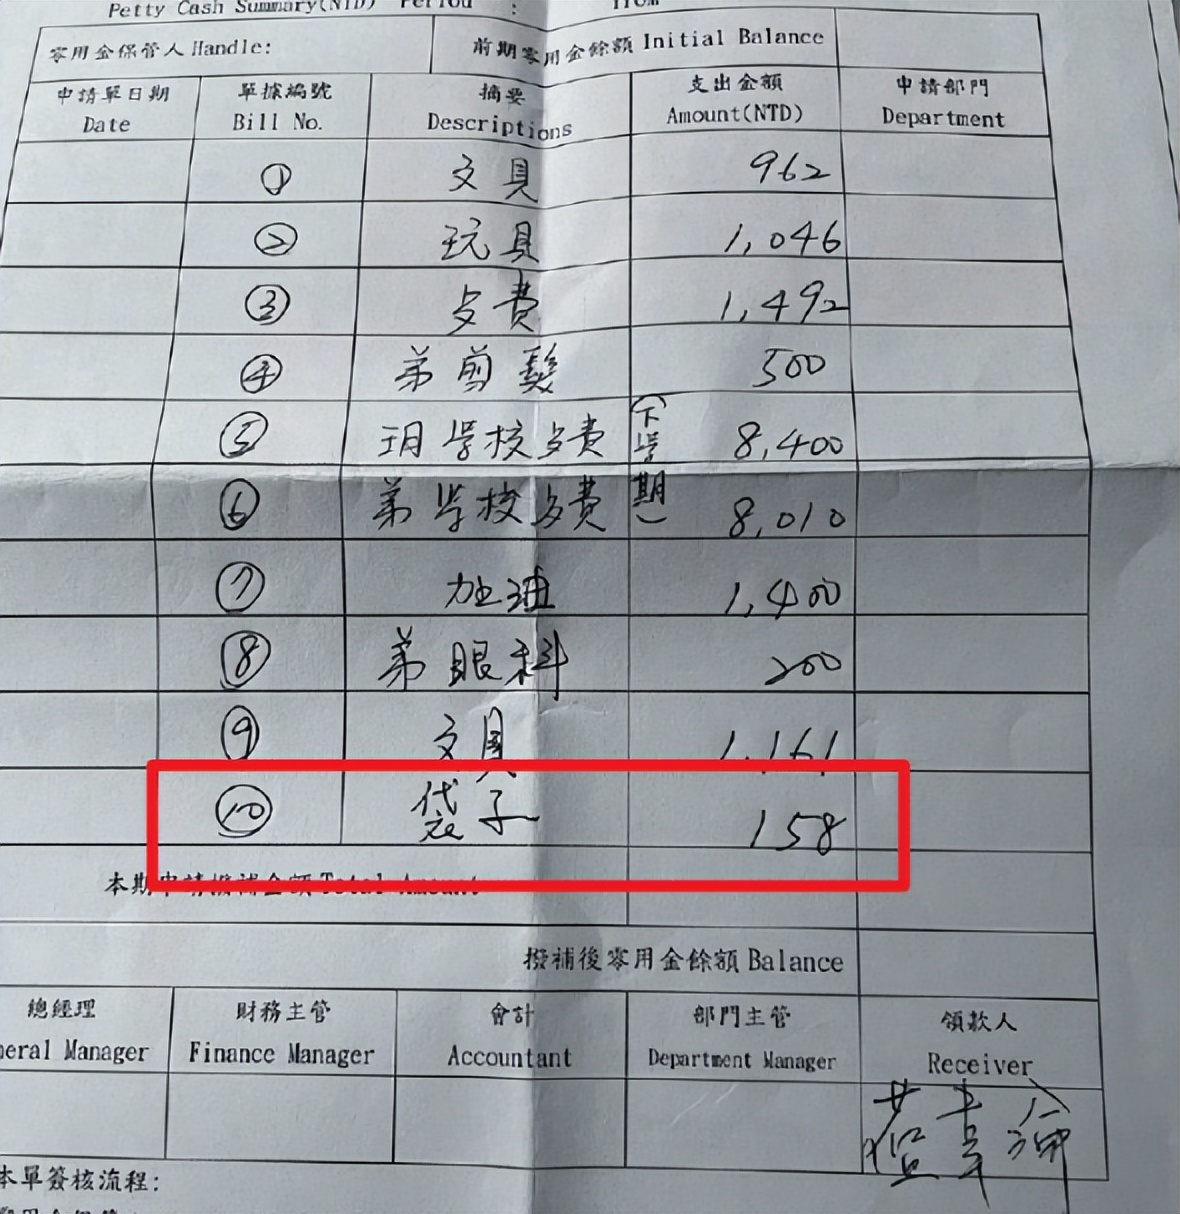 Petty Cash Summary(NTD) Period :
零用金保管人 Handle: 前期零用金餘額 Initial Balance
申請單日期 單據編號 摘要 支出金額 申請部門
Date Bill No. Descriptions Amount(NTD) Department
① 文具 962
② 玩具 1,046
③ 餐費 1,492
④ 弟剪髮 500
⑤ 玥学校餐費 (下学期) 8,400
⑥ 弟学校餐費 8,010
⑦ 加油 1,400
⑧ 弟眼科 200
⑨ 文具 1,161
⑩ 袋子 158
本期申請撥補金額 Total Amount
撥補後零用金餘額 Balance
總經理 財務主管 會計 部門主管 領款人
neral Manager Finance Manager Accountant Department Manager Receiver
本單簽核流程: